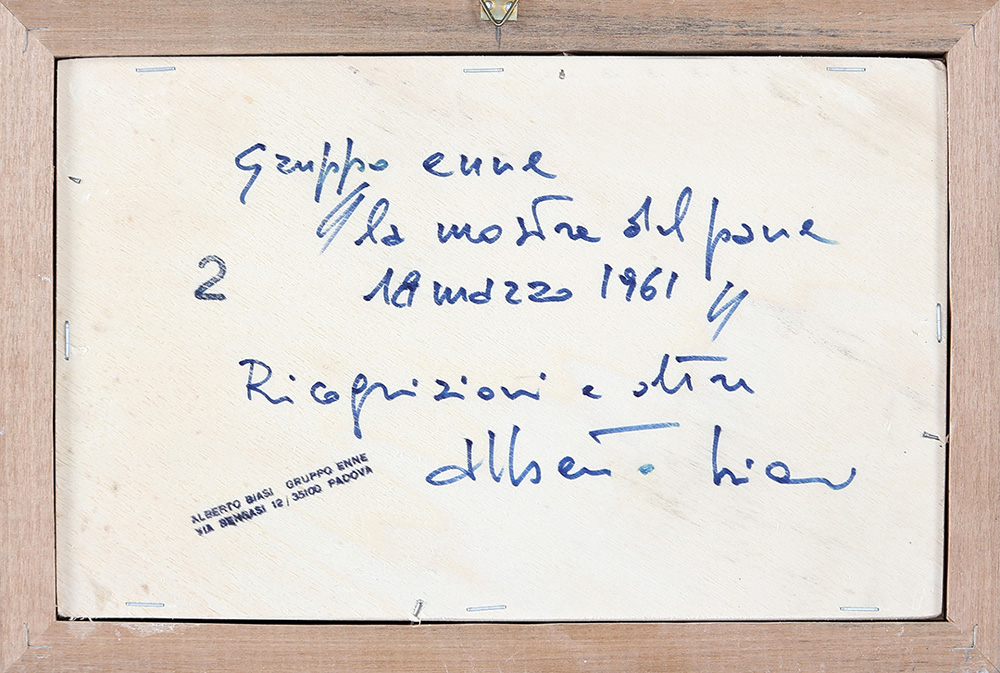 Gruppo enne
"la mostra del pane
2
18 marzo 1961"
Ricognizioni e oltre
Alberto Biasi
ALBERTO BIASI GRUPPO ENNE
VIA BENGASI 12/35100 PADOVA